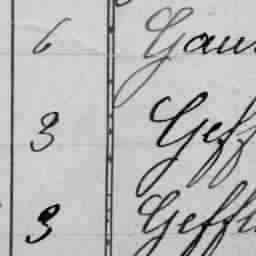 6 Gau
3 Geff
3 Geffl